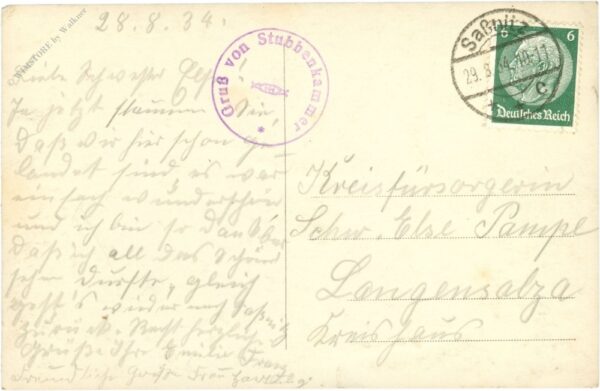 28.8.34.
Liebe Schwester Else!
Ja jetzt staunen Sie,
daß wir hier schon ge-
landet sind es war
einfach wunderschön
und ich bin so dankbar
daß ich all das Schöne
sehen durfte, gleich
geht's wieder nach Saßnitz
zurück. Recht herzliche
Grüße Ihre Emilie
Freundliche Grüße Frau
Gruß von Stubbenkammer
Saßnitz
29.8.34.10-11
C
6 6
Deutsches Reich
Kreisfürsorgerin
Schw. Else Pampel
Langensalza
Kreishaus
© WIMSTORE by Walkner